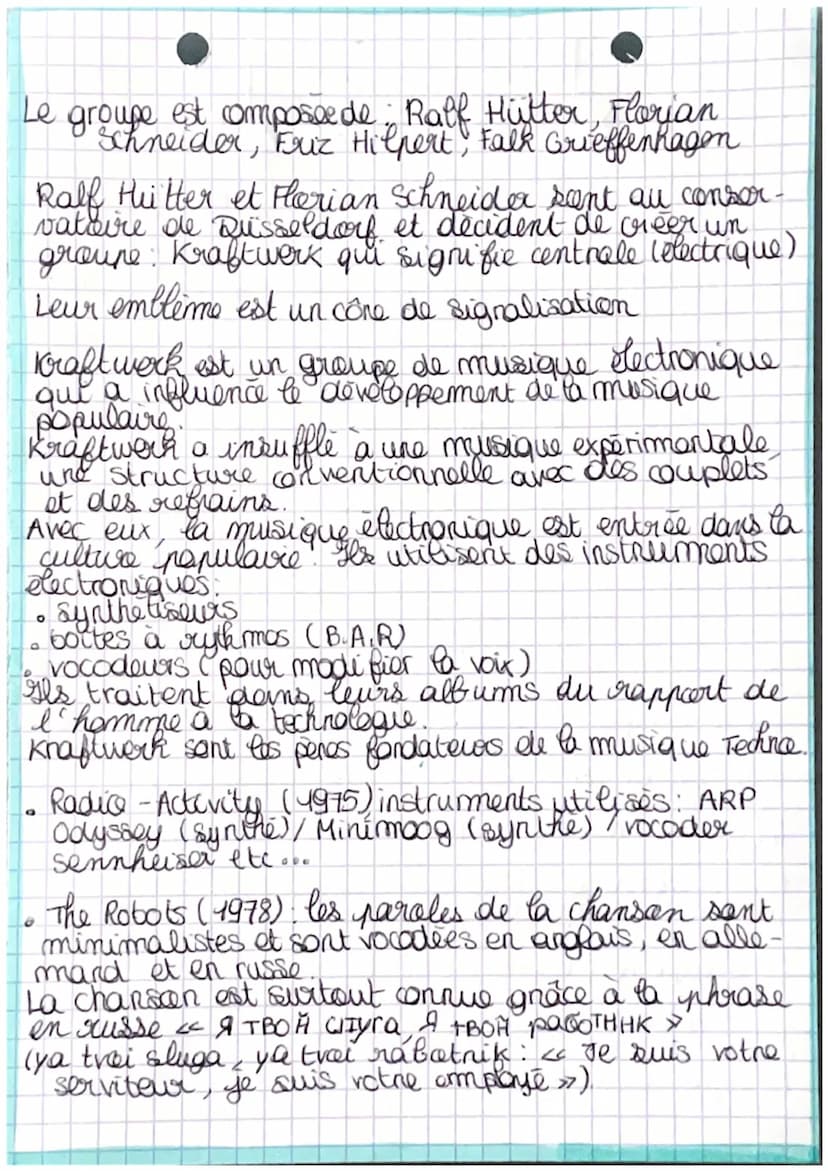 Le groupe est composée de : Ralf Hütter, Florian
Schneider, Friz Hilpert, Falk Grieffenhagen
Ralf Hütter et Florian Schneider sont au conser-
vatoire de Düsseldorf et décident de créer un
groupe : Kraftwerk qui signifie centrale (électrique)
Leur emblème est un cône de signalisation
Kraftwerk est un groupe de musique électronique
qui a influencé le développement de la musique
populaire.
Kraftwerk a insufflé à une musique expérimentale,
une structure conventionnelle avec des couplets
et des refrains.
Avec eux, la musique électronique est entrée dans la
culture populaire. Ils utilisent des instruments
électroniques :
• synthétiseurs
• boîtes à rythmes (B.A.R)
• vocodeurs (pour modifier la voix)
Ils traitent dans leurs albums du rapport de
l'homme à la technologie.
Kraftwerk sont les pères fondateurs de la musique Techno.
• Radio-Activity (1975) instruments utilisés : ARP
Odyssey (synthé) / Minimoog (synthé) / vocoder
sennheiser etc...
• The Robots (1978) : les paroles de la chanson sont
minimalistes et sont vocodées en anglais, en alle-
mand et en russe.
La chanson est surtout connue grâce à la phrase
en russe « Я ТВОЙ слуга, Я ТВОЙ работник »
(ya tvoi sluga, ya tvoi rabotnik : « Je suis votre
serviteur, je suis votre employé »).